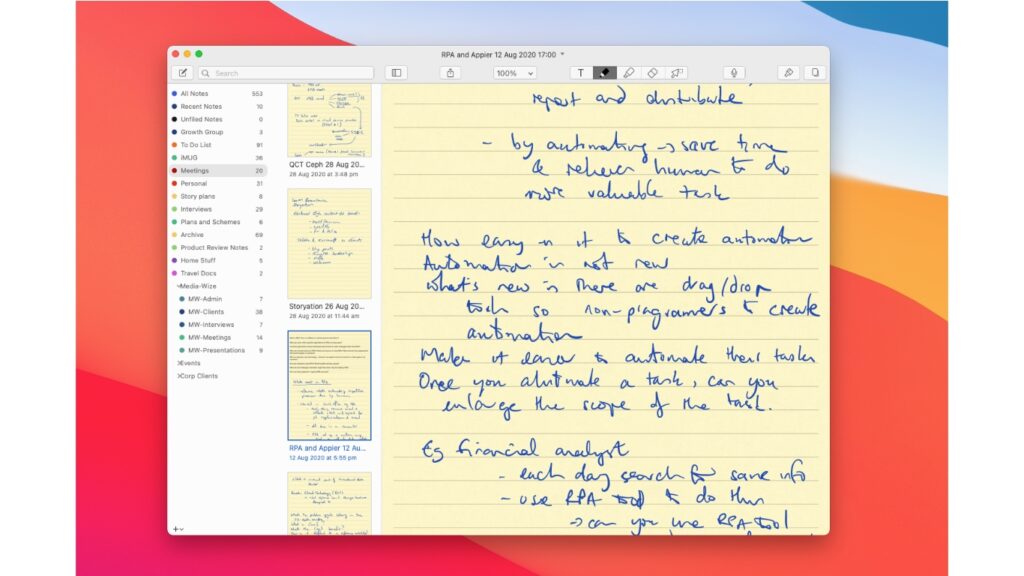 RPA and Appier 12 Aug 2020 17:00
Search
100%
T
All Notes 553
Recent Notes 10
Unfiled Notes 0
Growth Group 3
To Do List 91
iMUG 36
Meetings 20
Personal 31
Story plans 8
Interviews 29
Plans and Schemes 6
Archive 69
Product Review Notes 2
Home Stuff 5
Travel Docs 2
Media-Wize
MW-Admin 7
MW-Clients 38
MW-Interviews 7
MW-Meetings 14
MW-Presentations 9
Events
Corp Clients
QCT Ceph 28 Aug 20...
28 Aug 2020 at 3:48 pm
Storyation 26 Aug 20...
28 Aug 2020 at 11:44 am
RPA and Appier 12 Au...
12 Aug 2020 at 5:55 pm
report and distribute
- by automating → save time
& relieves human to do
more valuable task
How easy is it to create automation
Automation is not new
What's new is there are drag/drop
tools so non-programmers to create
automation
Makes it easier to automate their tasks
Once you automate a task, can you
enlarge the scope of the task.
Eg financial analyst
- each day search for same info
- use RPA tool to do this
→ can you use RPA tool